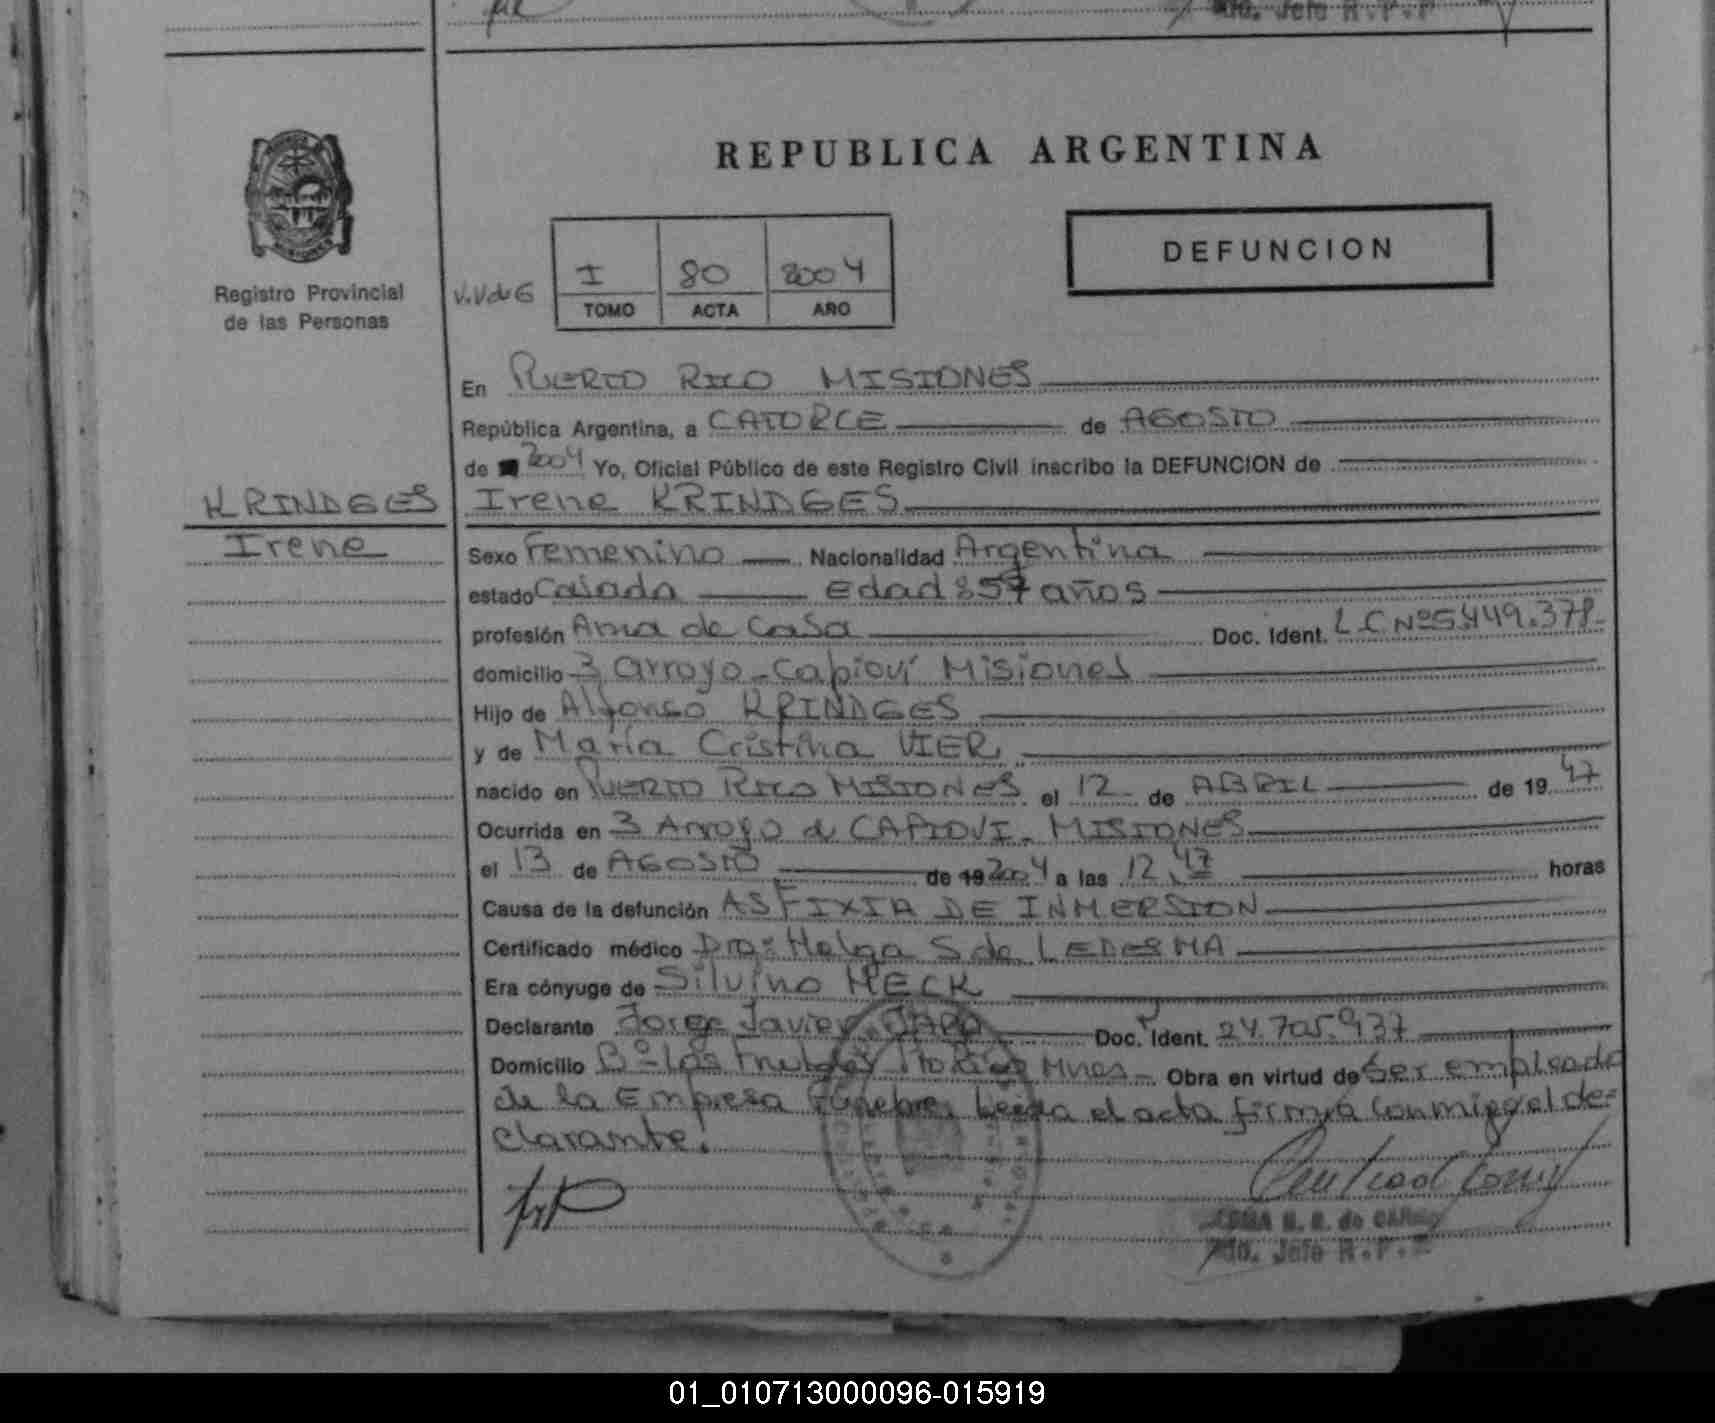 Ado. Jefe R.P.P
REPUBLICA ARGENTINA
DEFUNCION
I 80 2004
TOMO ACTA AÑO
V.V de G
Registro Provincial
de las Personas
En PUERTO RICO MISIONES
República Argentina, a CATORCE de AGOSTO
de 2004 Yo, Oficial Público de este Registro Civil inscribo la DEFUNCION de
KRINDGES
Irene
Irene KRINDGES
Sexo Femenino Nacionalidad Argentina
estado Casada Edad: 57 años
profesión Ama de Casa Doc. Ident. L.C.Nº5.449.378
domicilio 3 Arroyo-Capioví Misiones
Hijo de Alfonso KRINDGES
y de María Cristina VIER
nacido en PUERTO RICO MISIONES el 12 de ABRIL de 1947
Ocurrida en 3 Arroyo d CAPIOVI. MISIONES
el 13 de AGOSTO de 19 2004 a las 12,47 horas
Causa de la defunción ASFIXIA DE INMERSION
Certificado médico Dra: Helga S de LEDESMA
Era cónyuge de Silvino HECK
Declarante Jorge Javier JARA Doc. Ident. 24.705.937
Domicilio Bº Los Mnes- Obra en virtud de Ser empleado
de la Empresa Fúnebre. Leida el acta firma conmigo el de-
clarante.
Ado. Jefe R.P.P
01_010713000096-015919